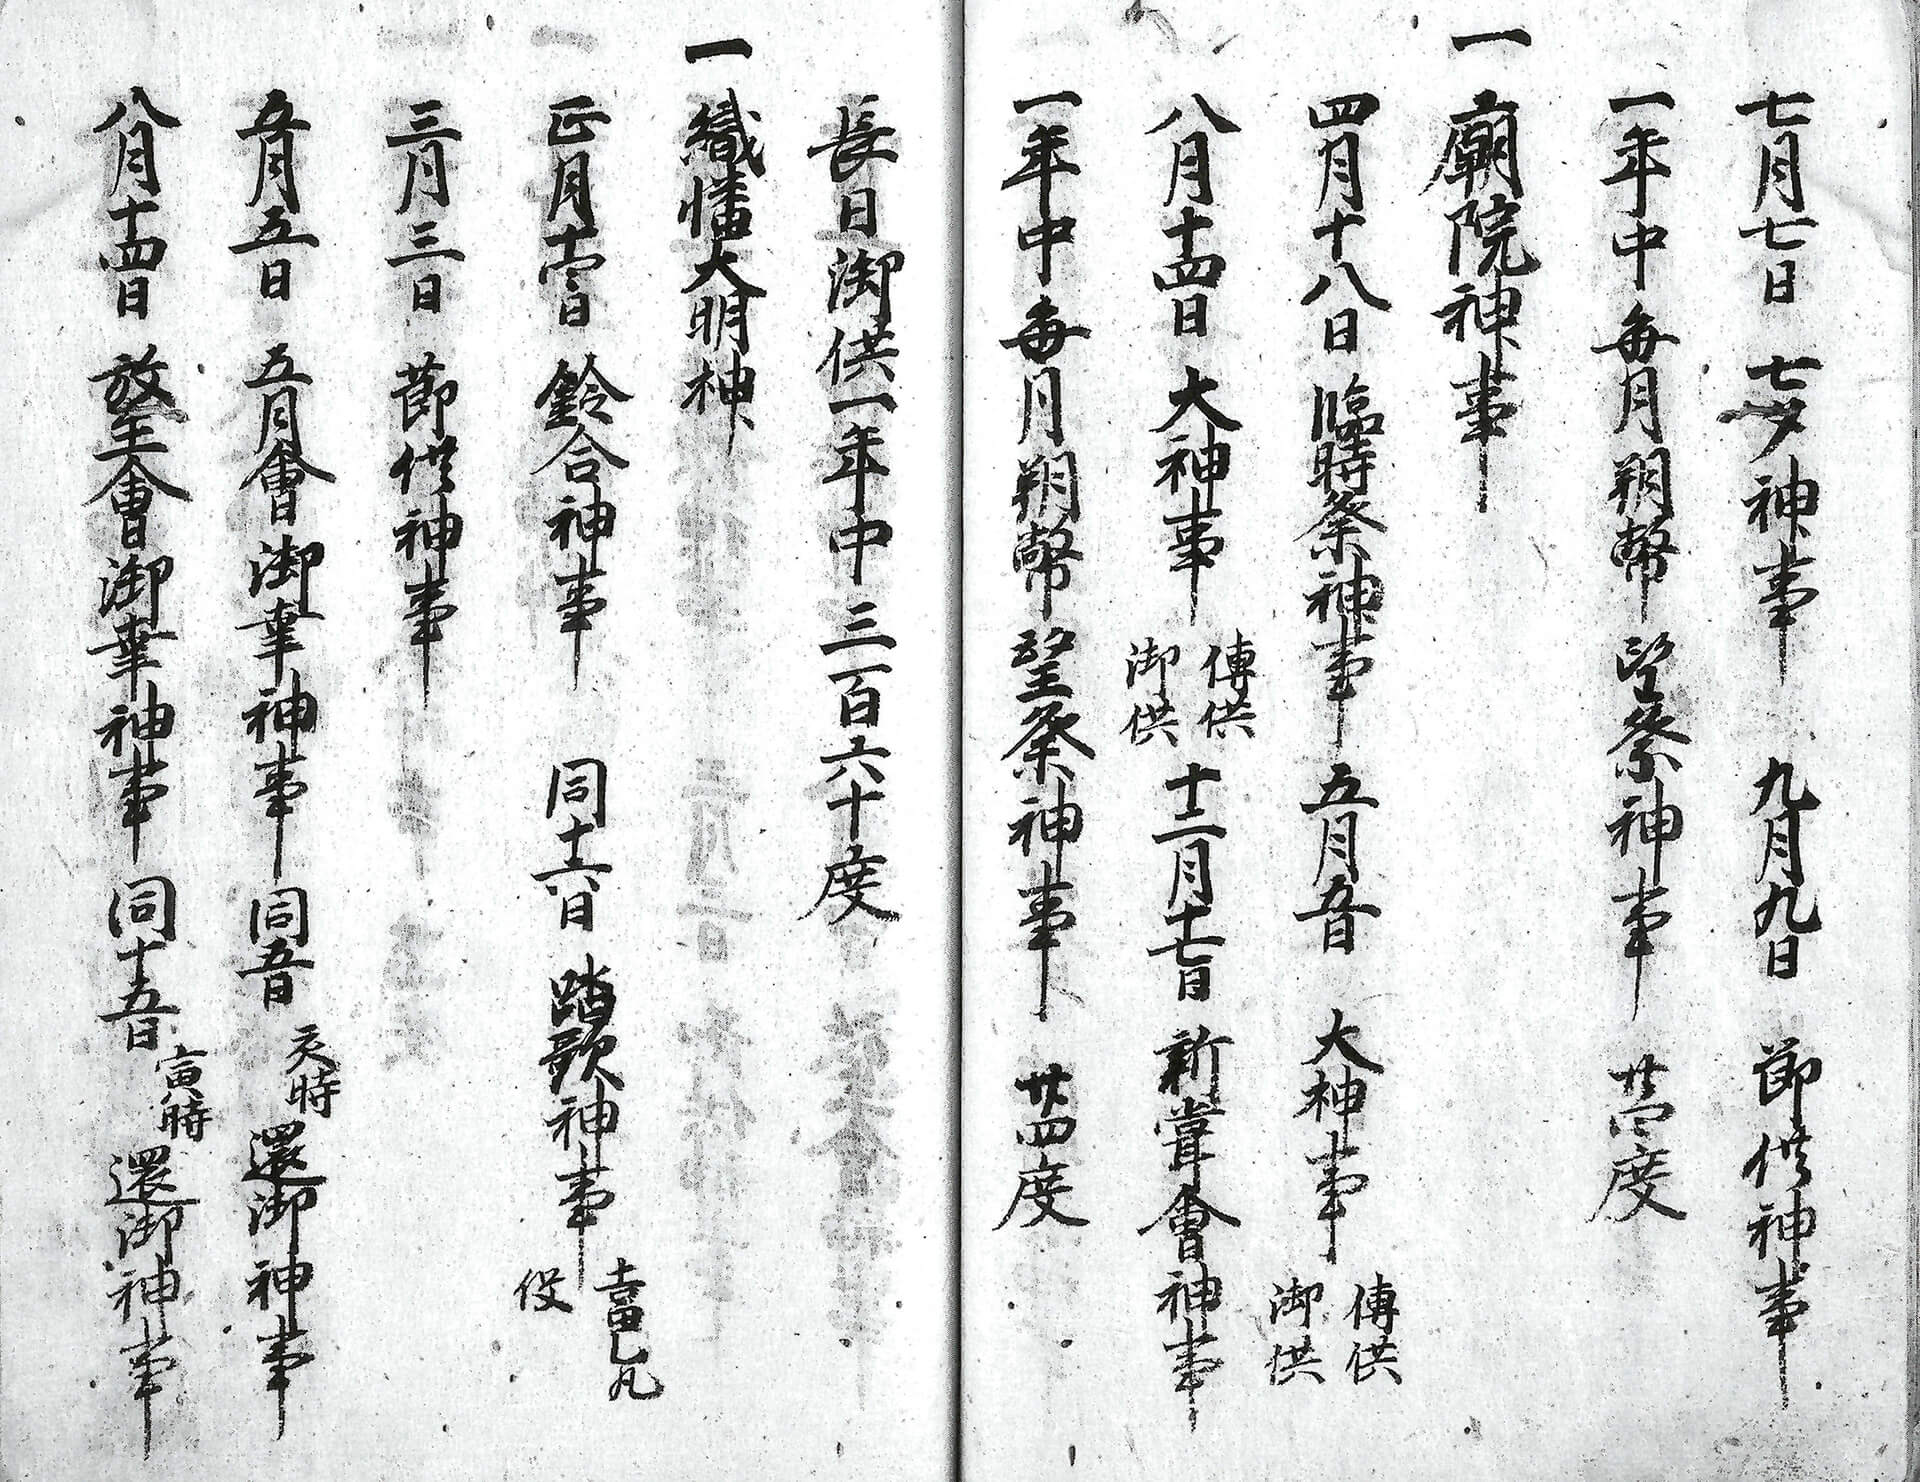 七月七日 七夕神事 九月九日 節供神事
一年中毎月朔幣望祭神事 廿四度
一 廟院神事
四月十八日 臨時祭神事 五月五日 大神事 傳供 御供
八月十四日 大神事 傳供 御供 十二月十七日 新嘗會神事
一年中毎月朔幣望祭神事 廿四度
長日御供一年中三百六十度
一 織幡大明神
正月十五日 鈴合神事 同十六日 踏歌神事
三月三日 節供神事
五月五日 五月會御輦神事 同五日 時還御神事
八月十四日 放生會御輦神事 同十五日 寅時還御神事